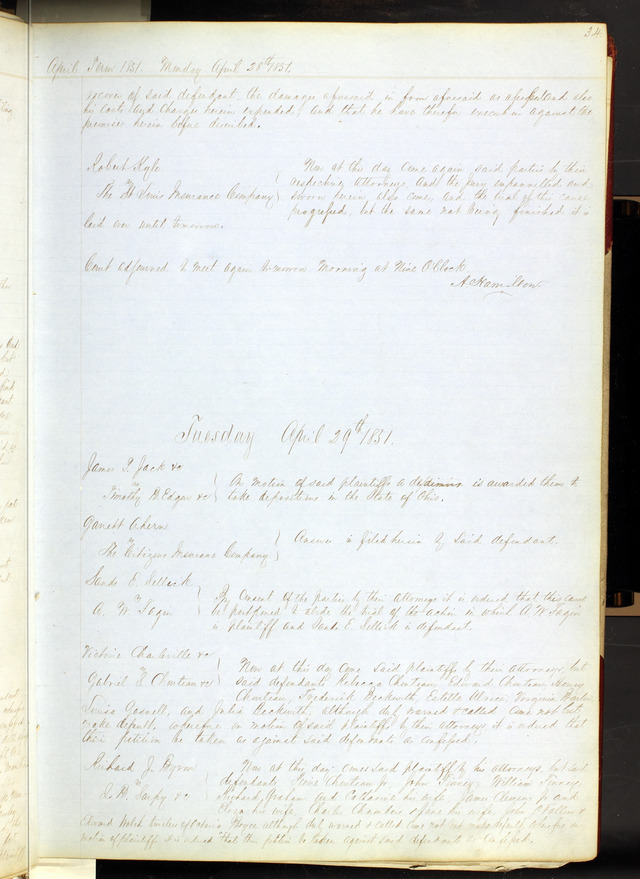 34
April Term 1851. Monday April 28th 1851.
of said defendant the damages aforesaid in form aforesaid as assessed and also
his costs and charges herein expended, and that he have therefor execution against the
premises herein before described.
Robert Kyle
vs
The St Louis Insurance Company
Now at this day come again said parties by their
respective attorneys and the jury empannelled and
sworn herein also come, and the trial of this cause
progressed, but the same not being finished it is
laid over until tomorrow.
Court adjourned to meet again tomorrow Morning at Nine O'Clock
A Hamilton
Tuesday April 29th 1851.
James T. Jack &c
vs
Timothy D. Edgar &c
On motion of said plaintiffs a dedimus is awarded them to
take depositions in the State of Ohio.
Garrett Ahern
vs
The Citizens Insurance Company
Answer is filed herein by said defendant.
Sands E. Selleck
vs
A. W. Fagin
By consent of the parties by their attorneys it is ordered that this cause
be postponed to abide the trial of the action in which A. W. Fagin
is plaintiff and Sands E. Selleck is defendant.
Victoire Charleville &c
vs
Gabriel S. Chouteau &c
Now at this day come said plaintiffs by their attorneys, but
said defendants Rebecca Chouteau, Edward Chouteau, Henry
Chouteau, Frederick Beckwith, Virginia
Louisa Gosnell, and Julia Beckwith, although duly warned & called come not but
make default, wherefore on motion of said plaintiffs by their attorneys it is ordered that
their petition be taken as against said defendants as confessed.
Richard J. Byron
vs
D. H. Sarpy &c
Now at this day comes said plaintiff by his attorneys, but said
defendants Chouteau jr John Finney, William Finney
Richard Graham and Catharine his wife, James jr and
Eliza his wife, Charles Chambers his wife
and although duly warned & called come not but make default, wherefore on
motion of plaintiff it is ordered that the petition be taken against said defendants as confessed.